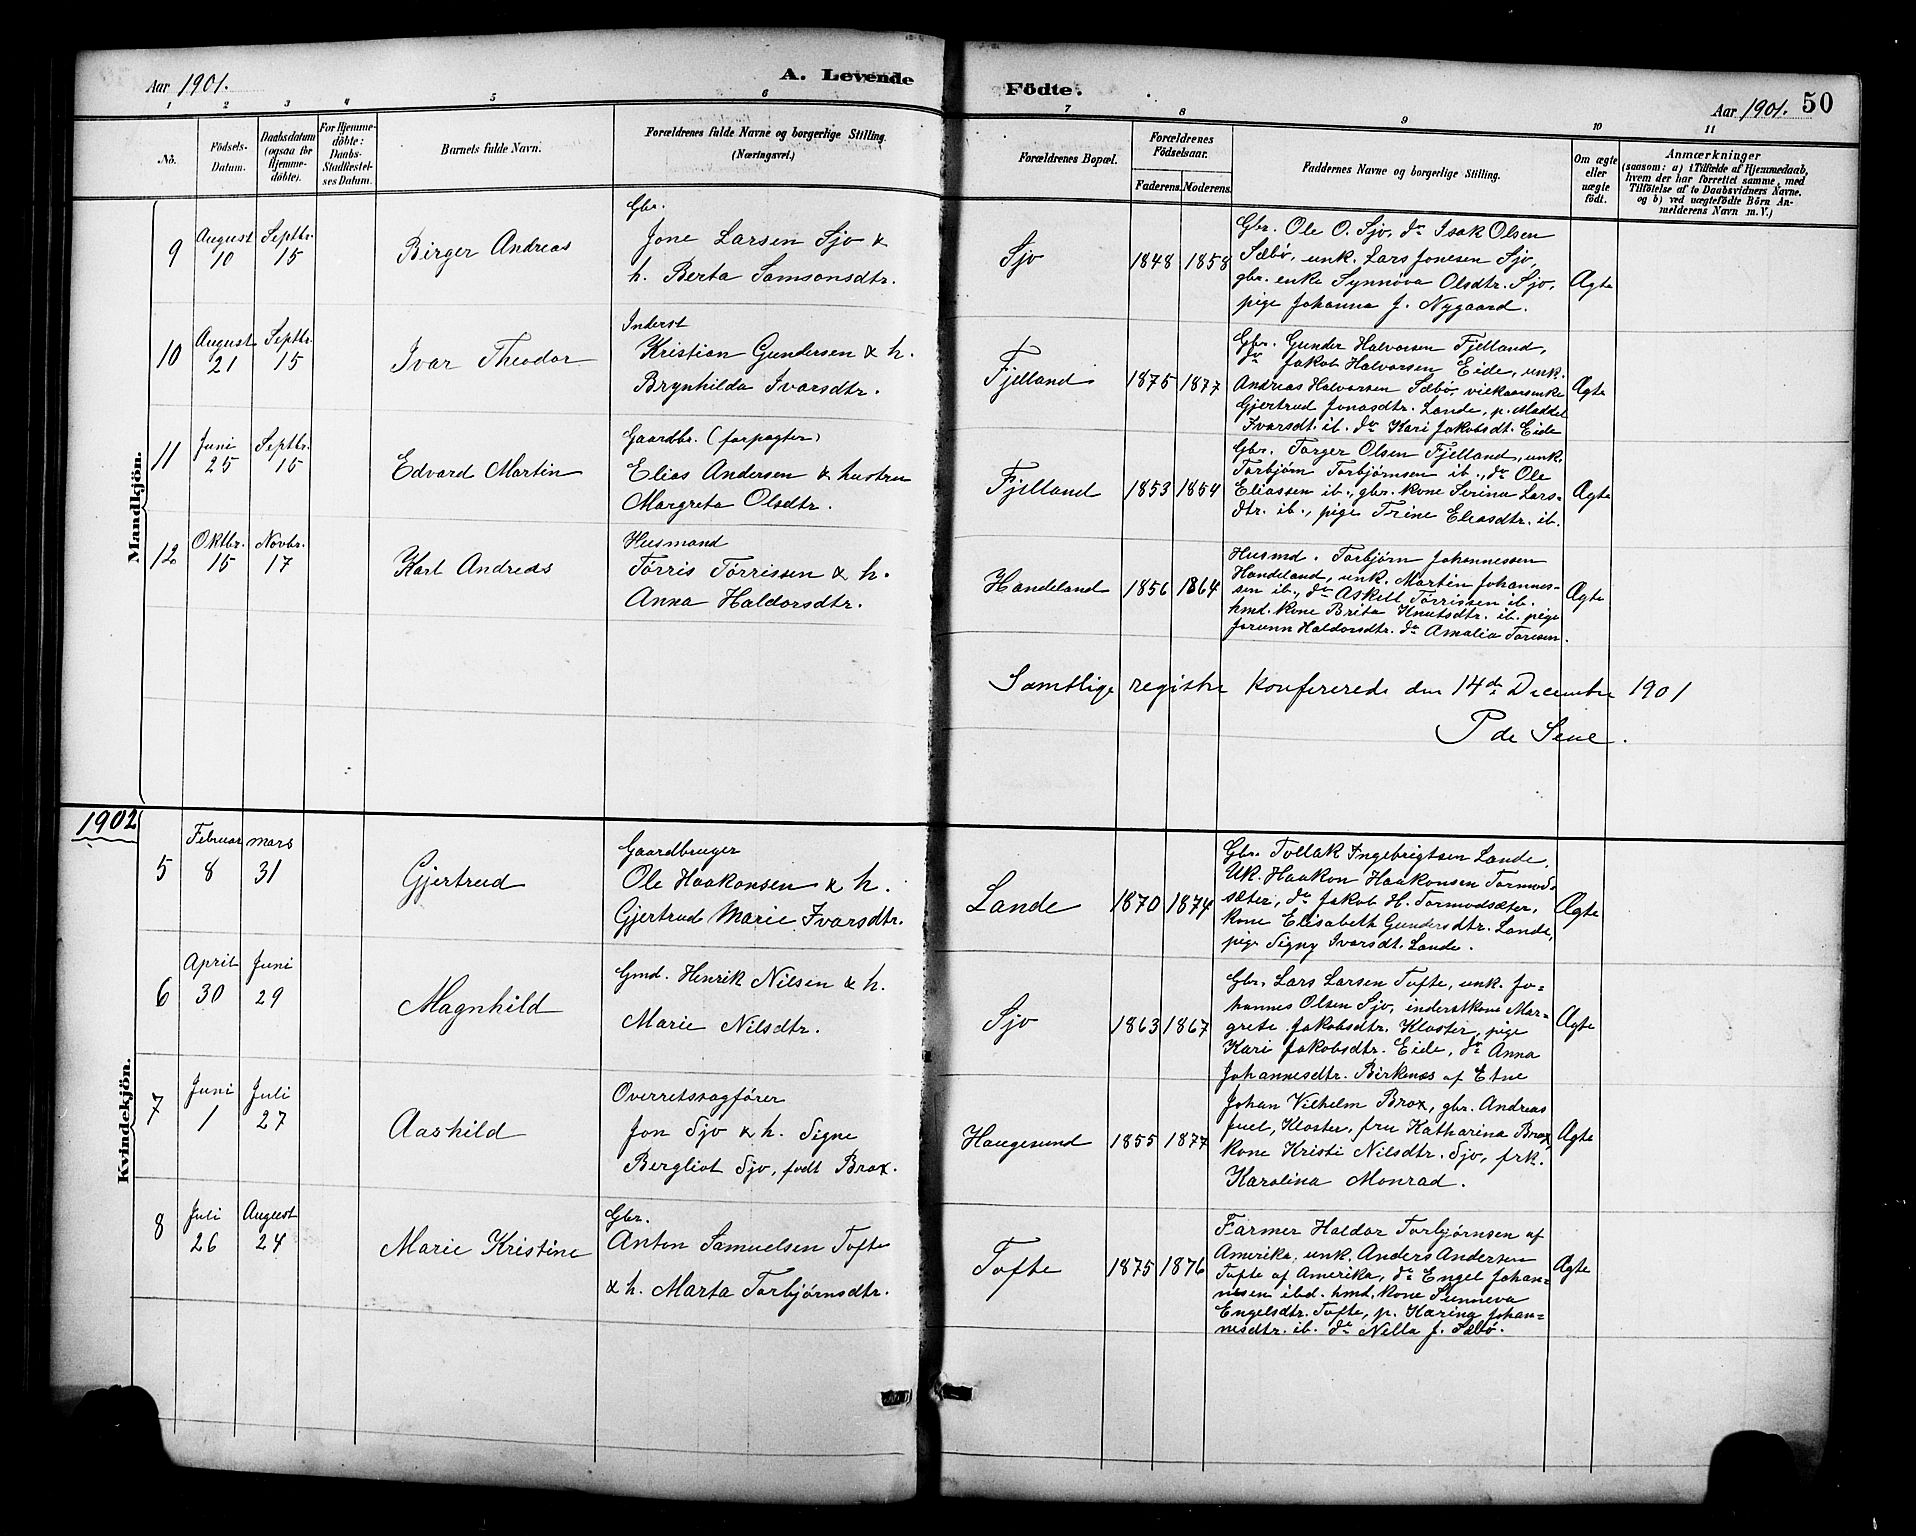 Aar 1901.
A. Levende
Födte.
Aar 1901. 50
1 2 3 4 5 6 7 8 9 10 11
No.
Födsels-
Datum.
Daabsdatum
(ogsaa for
Hjemme-
döbte).
For Hjemme-
döbte:
Daabs-
Stadfæstel-
ses Datum.
Barnets fulde Navn.
Forældrenes fulde Navne og borgerlige Stilling.
(Næringsvei.)
Forældrenes Bopæl.
Forældrenes
Födselsaar.
Faderens. Moderens.
Faddernes Navne og borgerlige Stilling.
Om ægte
eller
uægte
födt.
Anmærkninger
(saasom: a) i Tilfælde af Hjemmedaab,
hvem der har forrettet samme, med
Tilföielse af to Daabsvidners Navne.
og b) ved uægtefödte Börn An-
melderens Navn m. V.)
Mandkjön.
9
August
10
Septbr.
15
Birger Andreas
Gbr.
Jone Larsen Sjo &
h. Berta Samsonsdtr.
Sjo
1848 1858
Gbr. Ole O. Sjo, do Isak Olsen
Sæbö, unk. Lars Jonesen Sjo,
gbr. enke Synnöva Olsdtr. Sjo,
pige Johanna J. Nygaard.
Ægte
10
August
21
Septbr.
15
Ivar Theodor
Inderst
Kristian Gundersen & h.
Brynhilda Ivarsdtr.
Fjelland
1875 1877
Gbr. Gunder Halvorsen Fjelland,
do Jakob Halvorsen Eide, unk.
Andreas Halvorsen Sæbö, vilkaarsenke
Gjertrud Jonasdtr. Lande, p. Maddel
Ivarsdt. ib. do Kari Jakobsdt. Eide
Ægte
11
Juni
25
Septbr.
15
Edvard Martin
Gaardbr. (forpagter)
Elias Andersen & hustru
Margreta Olsdtr.
Fjelland
1853 1854
Gbr. Torger Olsen Fjelland, unk.
Torbjørn Torbjørnsen ib., do Ole
Eliassen ib., gbr. kone Serina Lars-
dtr. ib., pige Trine Eliasdtr. ib.
Ægte
12
Oktbr.
15
Novbr.
17
Karl Andreas
Husmand
Tørris Tørrissen & h.
Anna Haldorsdtr.
Handeland
1856 1864
Husmd. Torbjørn Johannessen
Handeland, unk. Martin Johannes-
sen ib., do Askell Tørrissen ib.
hmd. kone Brita Knutsdtr. ib. pige
Jorunn Haldorsdtr. do Amalia Toresen.
Ægte
Samtlige registre konfererede den 14de December 1901
P de Seue.
1902
Kvindekjön.
5
Februar
8
mars
31
Gjertrud
Gaardbruger
Ole Haakonsen & h.
Gjertrud Marie Ivarsdtr.
Lande
1870 1874
Gbr. Tollak Ingebrigtsen Lande.
UK. Haakon Haakonsen Tormod-
sæter, do Jakob H. Tormodsæter,
kone Elisabeth Gundersdtr. Lande,
pige Signy Ivarsdt. Lande.
Ægte
6
April
30
Juni
29
Magnhild
Gmd. Henrik Nilsen & h.
Marie Nilsdtr.
Sjo
1863 1867
Gbr. Lars Larsen Tofte, unk. Jo-
hannes Olsen Sjo, inderstkone Mar-
grete Jakobsdtr. Kloster, pige
Kari Jakobsdtr. Eide, do Anna
Johannesdtr. Birkenes af Etne
Ægte
7
Juni
1
Juli
27
Aashild
Overretssagfører
Jon Sjo & h. Signe
Bergliot Sjo, født Brox.
Haugesund
1855 1877
Johan Vilhelm Brox, gbr. Andreas
Juel, Kloster, fru Katharina Brox,
kone Kristi Nilsdtr. Sjo, frk.
Karolina Monrad.
Ægte
8
Juli
26
August
24
Marie Kristine
Gbr.
Anton Samuelsen Tofte
& h. Marta Torbjørnsdtr.
Tofte
1875 1876
Farmer Haldor Torbjørnsen af
Amerika, unk. Anders Andersen
Tofte af Amerika, do Engel Johan-
nesen ibd. hmd. kone Sunneva
Engelsdtr. Tofte, p. Karina Johan-
nesdtr. ib. do Nilla J. Sæbö.
Ægte